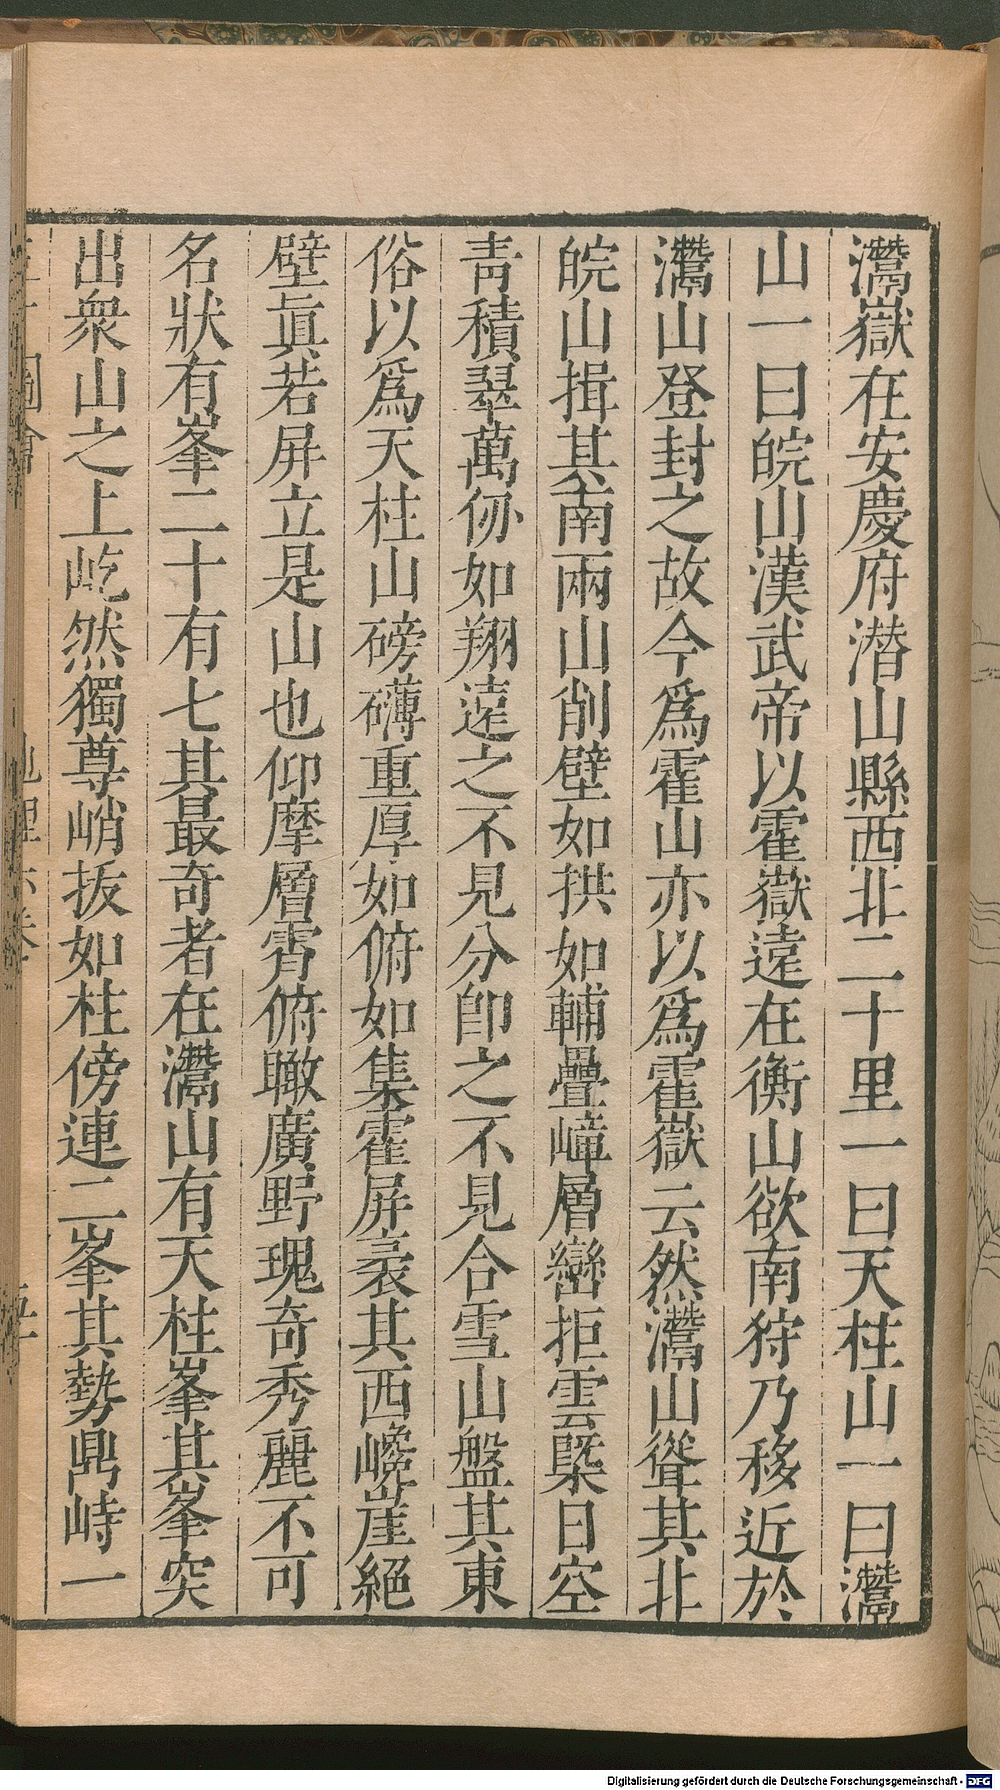 灊嶽在安慶府潛山縣西北二十里一曰天柱山一曰灊
山一曰皖山漢武帝以霍嶽遠在衡山欲南狩乃移近於
灊山登封之故今爲霍山亦以爲霍嶽云然灊山聳其北
皖山揖其南兩山削壁如拱如輔疊嶂層巒拒雲槩日空
青積翠萬仞如翔遠之不見分卽之不見合雪山盤其東
俗以爲天柱山磅礴重厚如俯如集霍屏褁其西巉崖絕
壁眞若屏立是山也仰摩層霄俯瞰廣野瑰奇秀麗不可
名狀有峯二十有七其最奇者在灊山有天柱峯其峯突
出衆山之上屹然獨尊峭拔如柱傍連二峯其勢鼎峙一
圖會
Digitalisierung gefördert durch die Deutsche Forschungsgemeinschaft - DFG